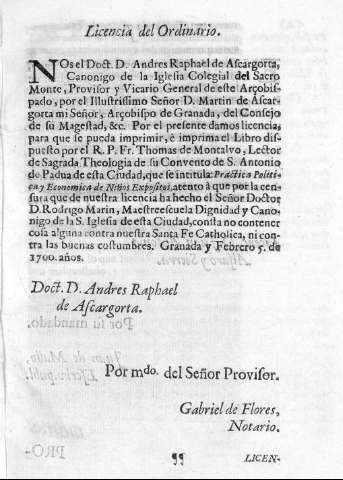 Licencia del Ordinario.
NOs el Doct. D. Andres Raphael de Aſcargorta,
Canonigo de la Igleſia Colegial del Sacro
Monte, Proviſor y Vicario General de eſte Arçobiſ-
pado, por el Illuſtriſſimo Señor D. Martin de Aſcar-
gorta mi Señor, Arçobiſpo de Granada, del Conſejo
de ſu Mageſtad, &c. Por el preſente damos licencia,
para que ſe pueda imprimir, è imprima el Libro diſ-
pueſto por el R. P. Fr. Thomas de Montalvo, Lector
de Sagrada Theologia de ſu Convento de S. Antonio
de Padua de eſta Ciudad, que ſe intitula: Practica Politi-
ca y Economica de Niños Expoſitos, atento à que por la cen-
ſura que de nueſtra licencia ha hecho el Señor Doctor
D. Rodrigo Marin, Maestreescuela Dignidad y Cano-
nigo de la S. Igleſia de eſta Ciudad, conſta no contener
coſa alguna contra nueſtra Santa Fe Catholica, ni con-
tra las buenas coſtumbres. Granada y Febrero 5. de
1700. años.
Doct. D. Andres Raphael
de Aſcargorta.
Por mdo. del Señor Proviſor.
Gabriel de Flores,
Notario.
¶¶ LICEN-